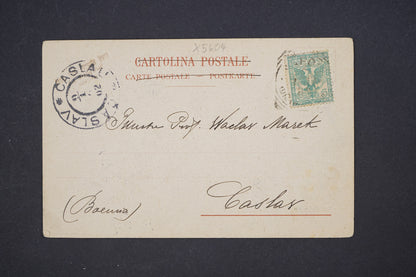 X5604
CARTOLINA POSTALE
CARTE POSTALE — POSTKARTE
ČASLAV
ČÁSLAV
02
Prof. Waclav Marek
Caslav
(Boemia)